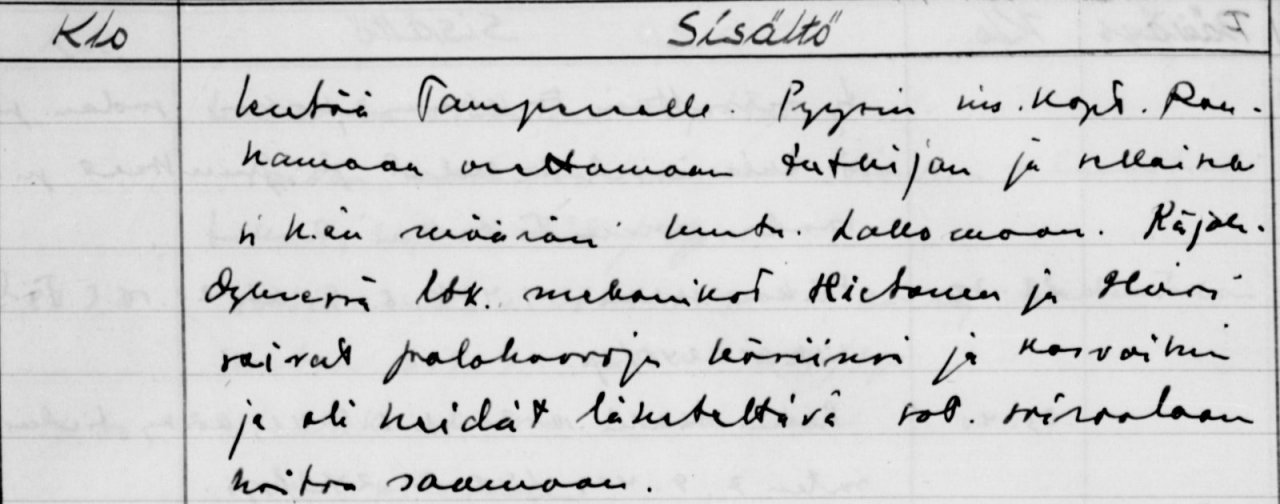 Klo Sisältö
Tampereelle. Pyysin ins. kapt. Ran-
kamaan asettamaan tutkijan ja
niihin määrän luutn. Lallomaan. Räjäh-
dyksessä ltk. mekanikot Hietanen ja
saivat palohaavoja käsiinsi ja kasvoihin
ja oli heidät lähetettävä sot. sairaalaan
hoitoa saamaan.